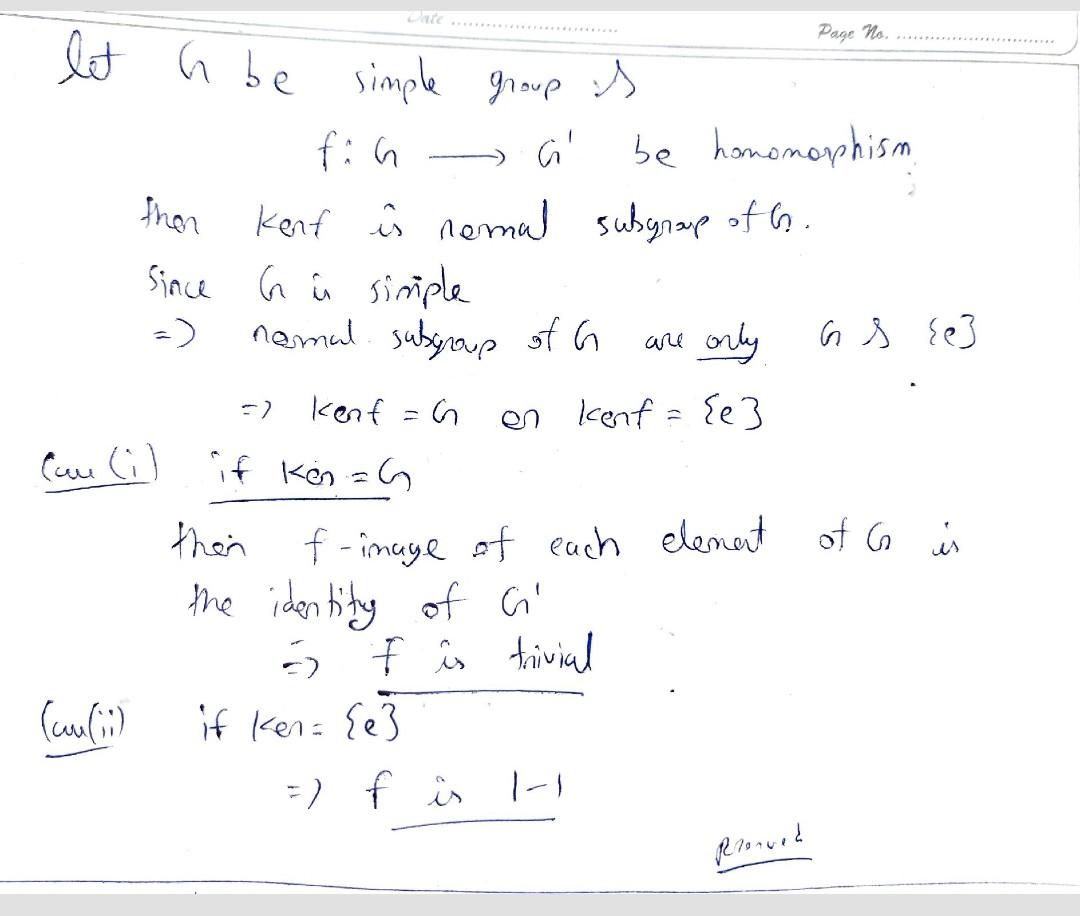 Date ....................
Page No. ....................
let G be simple group &
f: G ⟶ G' be homomorphism
then kerf is normal subgroup of G.
Since G is simple
=> normal subgroup of G are only G & {e}
=> kerf = G or kerf = {e}
Case (i) if Ker = G
then f-image of each element of G is
the identity of G'
=> f is trivial
Case (ii) if Ker = {e}
=> f is 1-1
Proved